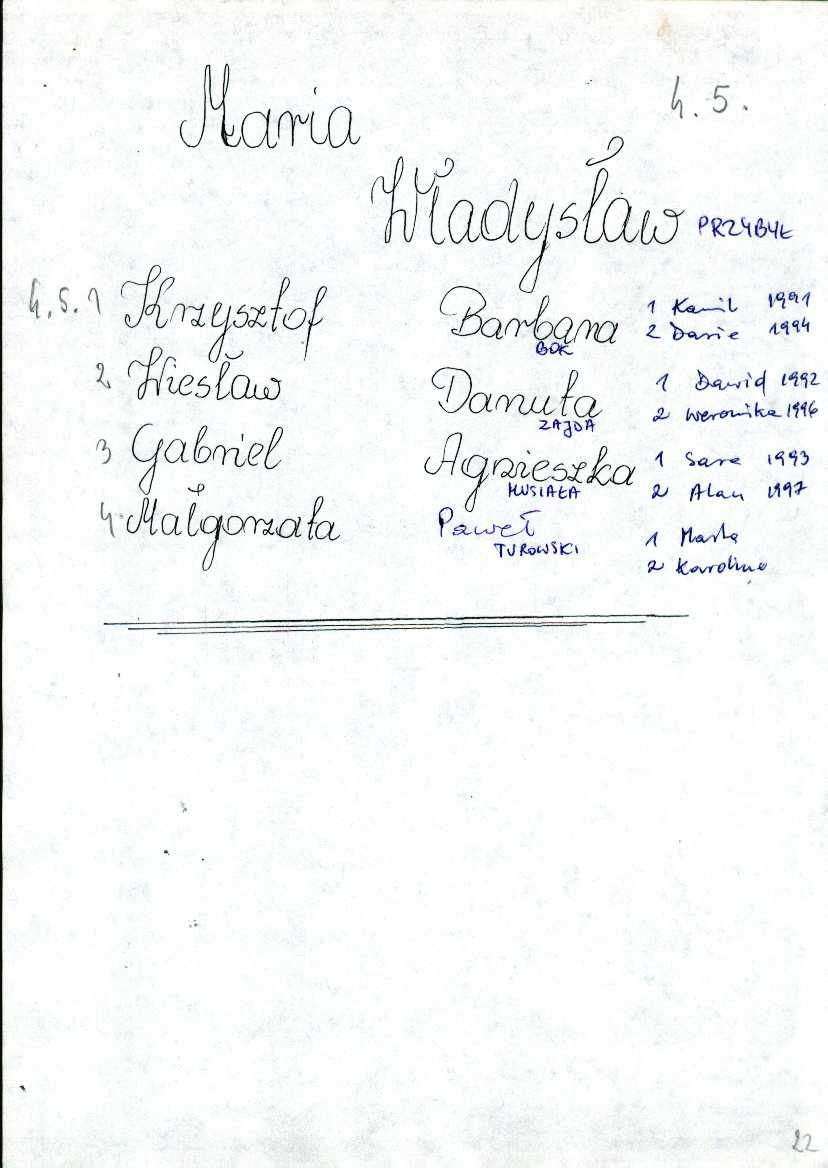 Maria
4.5.
Władysław PRZYBYŁ
4.5.1 Krzysztof Barbara 1 Kamil 1991
BOK 2 Daria 1994
2 Wiesław Danuta 1 Dawid 1992
ZAJDA 2 Weronika 1996
3 Gabriel Agnieszka 1 Sara 1993
MUSIAŁA 2 Alan 1997
4 Małgorzata Paweł 1 Marta
TUROWSKI 2 Karolina
22